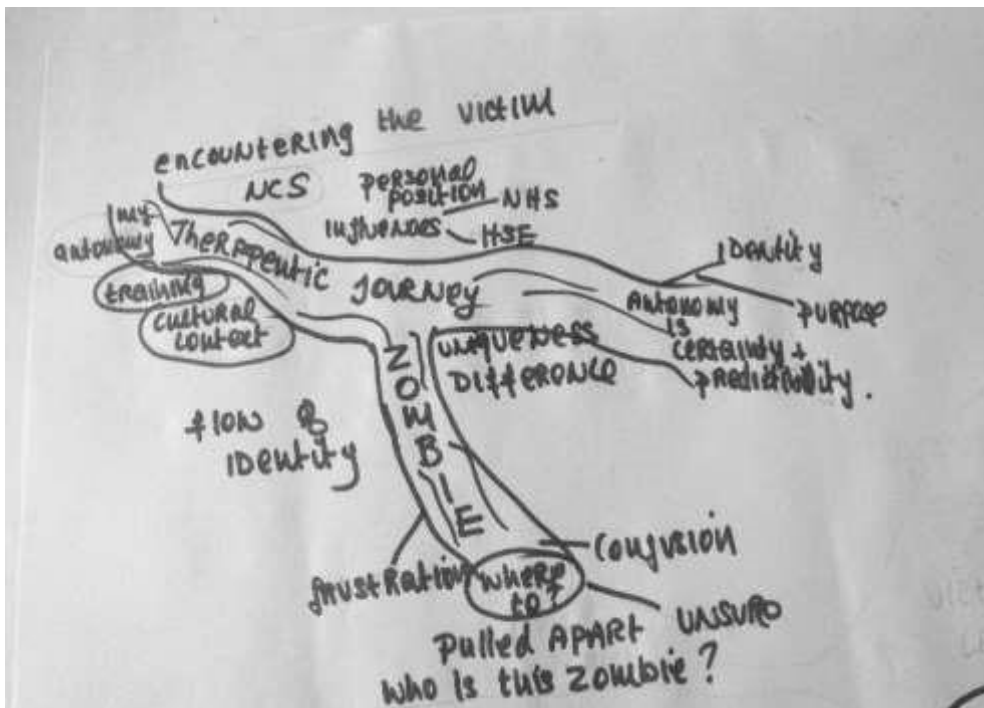 encountering the victim
NCS
personal
position
influences
NHS
HSE
my
autonomy
Therapeutic
Journey
training
cultural
context
Identity
purpose
Autonomy
is
certainty +
predictability.
uniqueness
Difference
ZOMBIE
flow of
Identity
frustration
where
to?
confusion
Pulled APART UNSURE
who is this zombie?